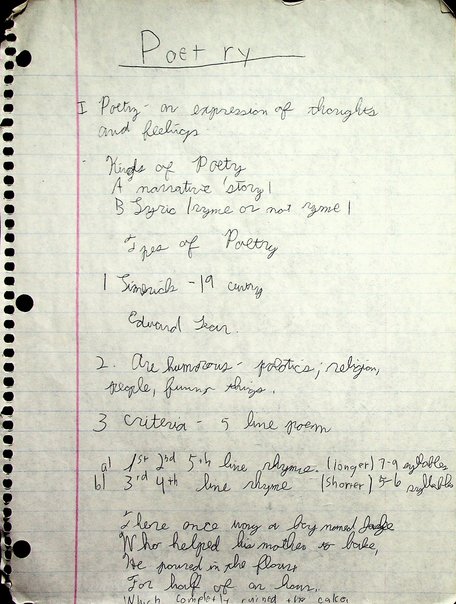 Poetry
I Poetry - an expression of thoughts
and feelings
Kinds of Poetry
A narrative 'story)
B Lyric (ryme or not ryme)
Types of Poetry
1 Limericks - 19 cuntry
Edward Lear.
2. Are humorous - politics; religion,
people, funny things.
3 criteria - 5 line poem
a) 1st 2nd 5th line rhyme. (longer) 7-9 syllables
b) 3rd 4th line rhyme (shorter) 5-6 syllables
There once was a boy named
Who helped his mother to bake,
He poured in the flour
For half of an hour,
Which completly ruined the cake.